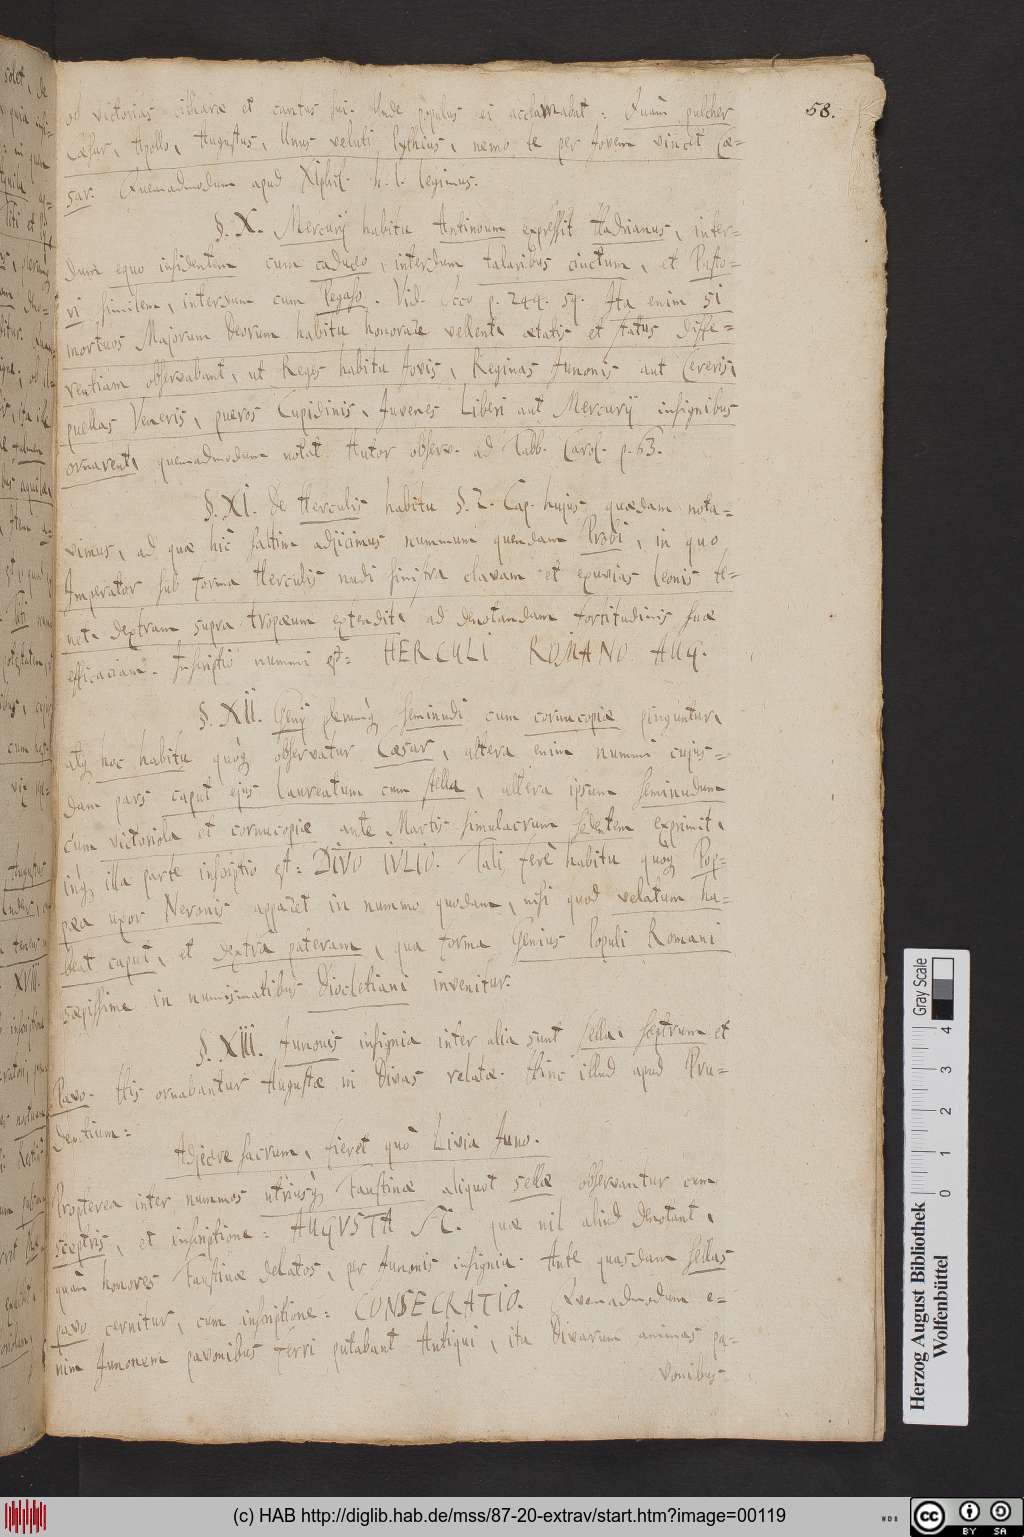 58.
ob victorias citharæ et cantus sui. Unde populus ei acclamabat: Quam pulcher
Cæsar, Apollo, Augustus, Unus veluti Pythius, nemo te per Jovem vincit Cæ=
sar. Quemadmodum apud Xiphil. h. l. legimus.
§. X. Mercurij habitu Antinoum expressit Hadrianus, inter=
dum equo insidentem cum caduceo, interdum talaribus cinctum, et
vi similem, interdum cum Pegaso. Vid. p. 244. 59. Ita enim si
mortuos Majorum Deorum habitu honorare vellent, ætatis et status diffe=
rentiam observabant, ut Reges habitu Jovis, Reginas Junonis aut Cereris,
puellas Veneris, pueros Cupidinis, Juvenes Liberi aut Mercurij insignibus
ornarent, quemadmodum notat Autor observ. ad Tabb. Carol. p. 63.
§. XI. De Herculis habitu §. 2. Cap. hujus quædam nota=
vimus, ad quæ hic saltim adjicimus nummum quendam Probi, in quo
Imperator sub forma Herculis nudi sinistra clavam et exuvias Leonis te=
net, dextram supra tropæum extendit, ad denotandam fortitudinis suæ
efficaciam. Inscriptio nummi est: HERCULI ROMANO AUG.
§. XII. Genij plerumq seminudi cum cornucopiæ pinguntur,
atq hoc habitu quoq observatur Cæsar, altera enim nummi cujus=
dam pars caput ejus laureatum cum stella, altera ipsum seminudum
cum victoriola et cornucopiæ ante Martis simulacrum sedentem exprimit,
inq illa parte inscriptio est: DIVO IVLIO. Tali ferè habitu quoq Pop=
pæa uxor Neronis apparet in nummo quodam, nisi quod velatum ha=
beat caput, et dextra pateram, qua forma Genius Populi Romani
sæpissime in numismatibus Diocletiani invenitur.
§. XIII. Junonis insignia inter alia sunt sella, sceptrum et
Pavo. His ornabantur Augustæ in Divas relatæ. Hinc illud apud Pru=
dentium:
Adjecere sacrum, fieret quo Livia Juno.
Propterea inter nummos utriusq Faustinæ aliquot sellæ observantur cum
sceptris, et inscriptione: AUGVSTA SC. quæ nil aliud denotant,
quam honores Faustinæ delatos, per Junonis insignia. Ante quasdam sellas
pavo cernitur, cum inscriptione: CONSECRATIO. Quemadmodum e=
nim Junonem pavonibus ferri putabant Antiqui, ita Divarum animas pa=
vonibus
Gray Scale
0 1 2 3 4
Herzog August Bibliothek
Wolfenbüttel
(c) HAB http://diglib.hab.de/mss/87-20-extrav/start.htm?image=00119
cc BY SA